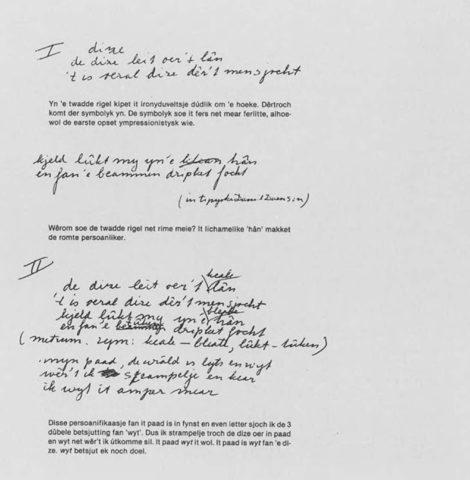 I
dize
de dize leit oer 't lân
't is oeral dize dêr't mensjocht
Yn 'e twadde rigel kipet it ironyduveltsje dúdlik om 'e hoeke. Dêrtroch
komt der symbolyk yn. De symbolyk soe it fers net mear ferlitte, alhoe-
wol de earste opset ympressionystysk wie.
kjeld lûkt my yn 'e hân
en fan 'e beammen dripket focht
Wêrom soe de twadde rigel net rime meie? It lichamelike 'hân' makket
de romte persoanliker.
II
keale
de dize leit oer 't lân
't is oeral dize dêr't mensjocht
bleate
kjeld lûkt my yn 'e hân
en fan 'e dripket focht
(metrum. rym: keale – bleate, lûkt – lûken)
myn paad, de wrâld is lyts en wyt
wêr't ik strampelje en kear
ik wyt it amper mear
Disse persoanifikaasje fan it paad is in fynst en even letter sjoch ik de 3
dûbele betsjutting fan 'wyt'. Dus ik strampelje troch de dize oer in paad
en wyt net wêr't ik útkomme sil. It paad wyt it wol. It paad is wyt fan 'e di-
ze. wyt betsjut ek noch doel.